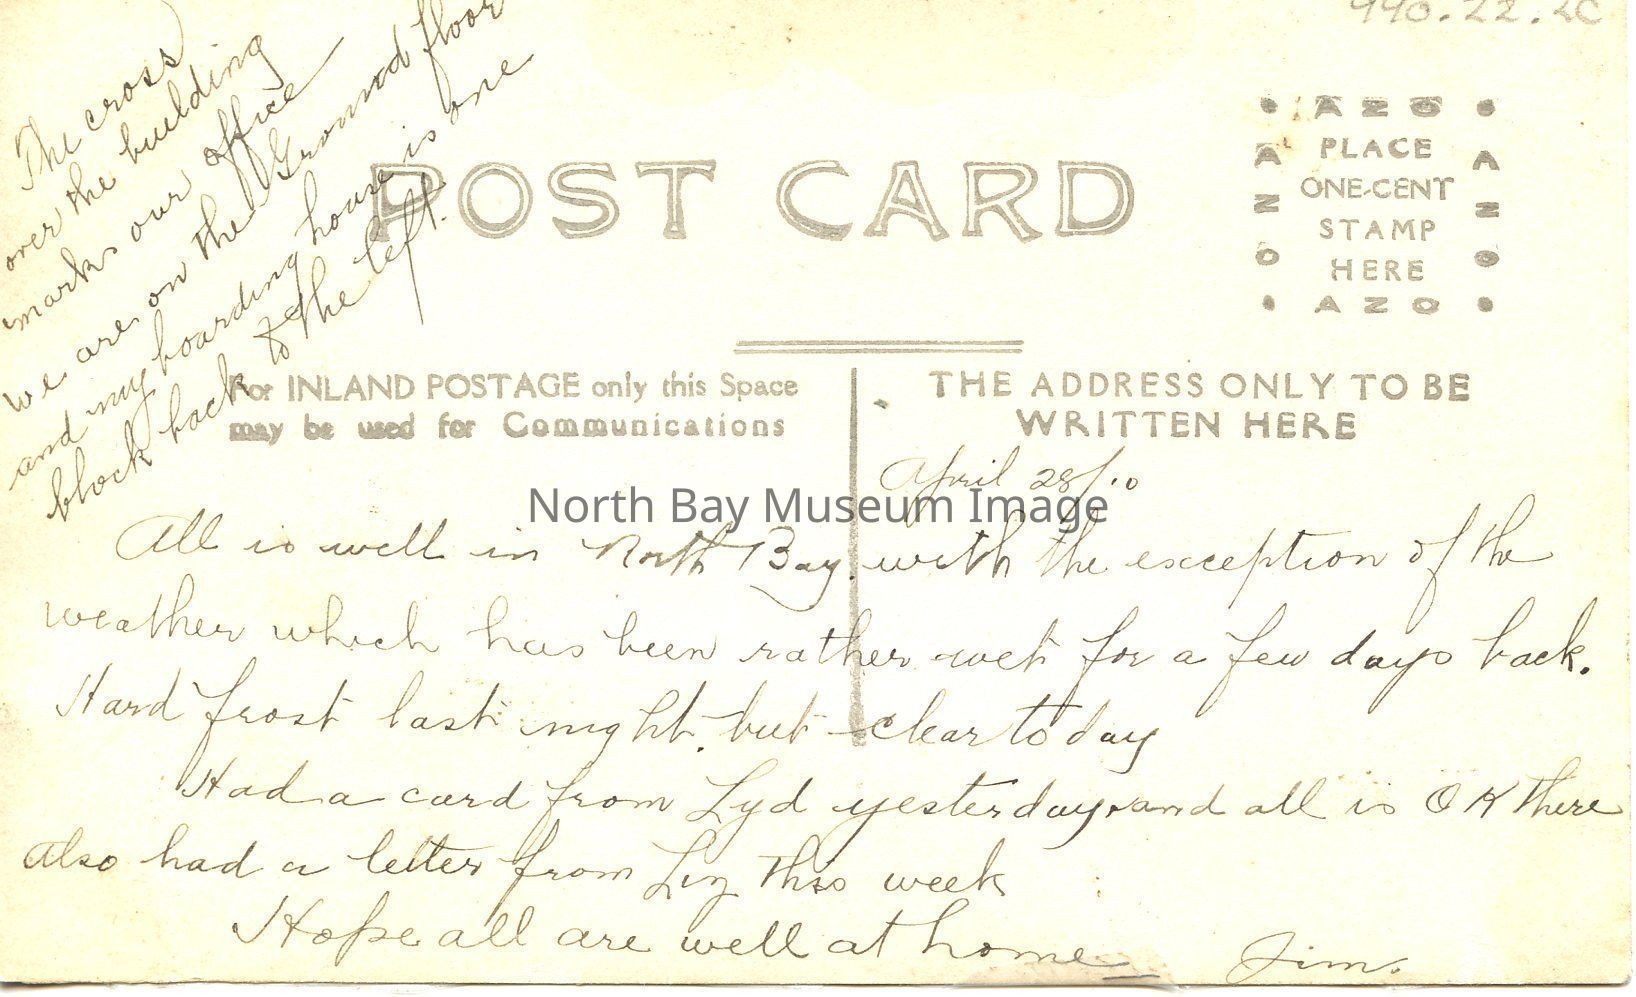 990.22.2C
The cross
over the building
marks our office
we are on the Ground floor
and my boarding house is one
block back to the left.
POST CARD
AZO
PLACE
ONE-CENT
STAMP
HERE
AZO
AZO
AZO
For INLAND POSTAGE only this Space
may be used for Communications
THE ADDRESS ONLY TO BE
WRITTEN HERE
April 28/10
North Bay Museum Image
All is well in North Bay. with the exception of the
weather which has been rather wet for a few days back.
Hard frost last night. but clear to day
Had a card from Lyd yesterday. and all is OK there
also had a letter from Liz this week
Hope all are well at home
Jim.